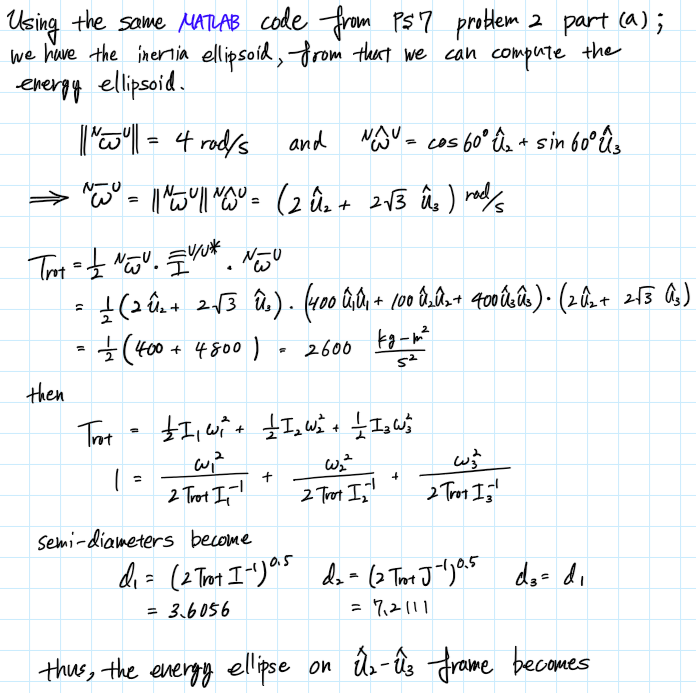 Using the same MATLAB code from PS7 problem 2 part (a);
we have the inertia ellipsoid, from that we can compute the
energy ellipsoid.
‖ᴺω̅ᵁ‖ = 4 rad/s and ᴺω̂ᵁ = cos60° û₂ + sin60° û₃
⟹ ᴺω̅ᵁ = ‖ᴺω̅ᵁ‖ ᴺω̂ᵁ = (2 û₂ + 2√3 û₃) rad/s
Trot = 1/2 ᴺω̅ᵁ · I̿^{U/U*} · ᴺω̅ᵁ
= 1/2 (2 û₂ + 2√3 û₃) · (400 û₁û₁ + 100 û₂û₂ + 400 û₃û₃) · (2 û₂ + 2√3 û₃)
= 1/2 (400 + 4800) = 2600 kg-m²/s²
then
Trot = 1/2 I₁ω₁² + 1/2 I₂ω₂² + 1/2 I₃ω₃²
1 = ω₁²/(2 Trot I₁⁻¹) + ω₂²/(2 Trot I₂⁻¹) + ω₃²/(2 Trot I₃⁻¹)
semi-diameters become
d₁ = (2 Trot I⁻¹)^0.5 d₂ = (2 Trot J⁻¹)^0.5 d₃ = d₁
= 3.6056 = 7.2111
thus, the energy ellipse on û₂-û₃ frame becomes